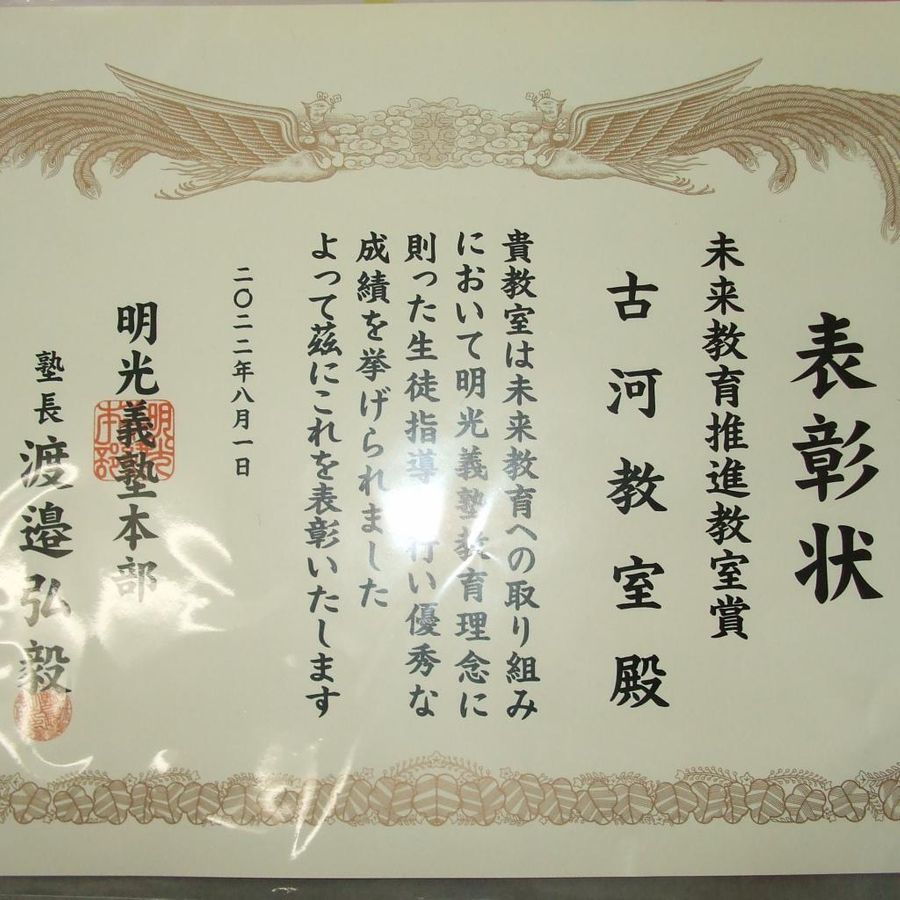 表彰状
未来教育推進教室賞
古河教室殿
貴教室は未来教育への取り組み
において明光義塾教育理念に
則った生徒指導 行い優秀な
成績を挙げられました
よって茲にこれを表彰いたします
二〇二二年八月一日
明光義塾本部
塾長 渡邉弘毅